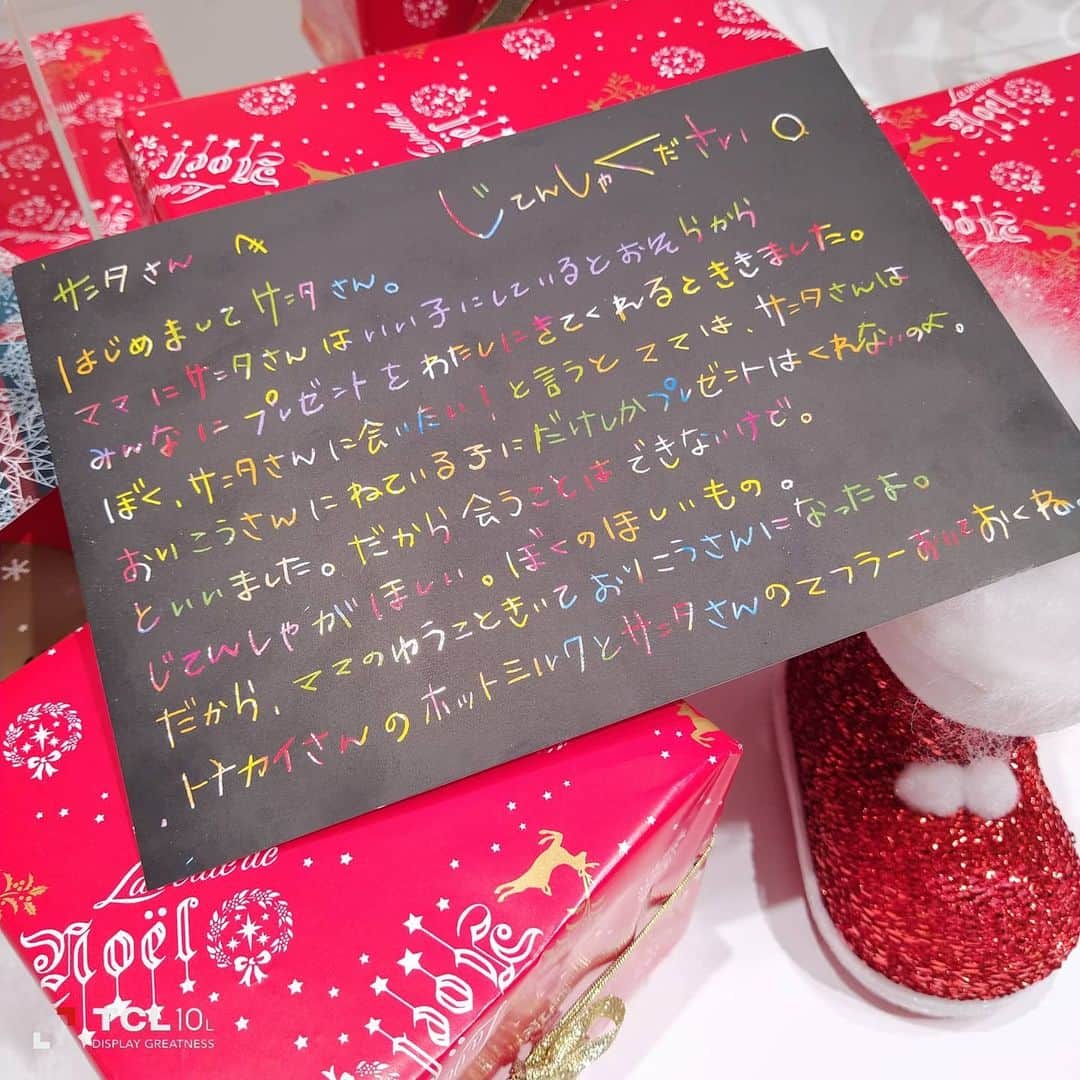 じてんしゃくださいo
サンタさんへ
はじめましてサンタさん。
ママにサンタさんはいい子にしているとおそらから
みんなにプレゼントをわたしにきてくれるとききました。
ぼく、サンタさんに会いたい!と言うとママは、サンタさんは
おりこうさんにねている子にだけしかプレゼントはくれないのよ。
といいました。だから会うことはできないけど。
じてんしゃがほしい。ぼくのほしいもの。
だから、ママのゆうこときいておりこうさんになったよ。
トナカイさんのホットミルクとサンタさんのマフラーおいておくね。
Noël
Noël
Noël
Noël
La veille de
Noël
Noël
TCL 10L
DISPLAY GREATNESS